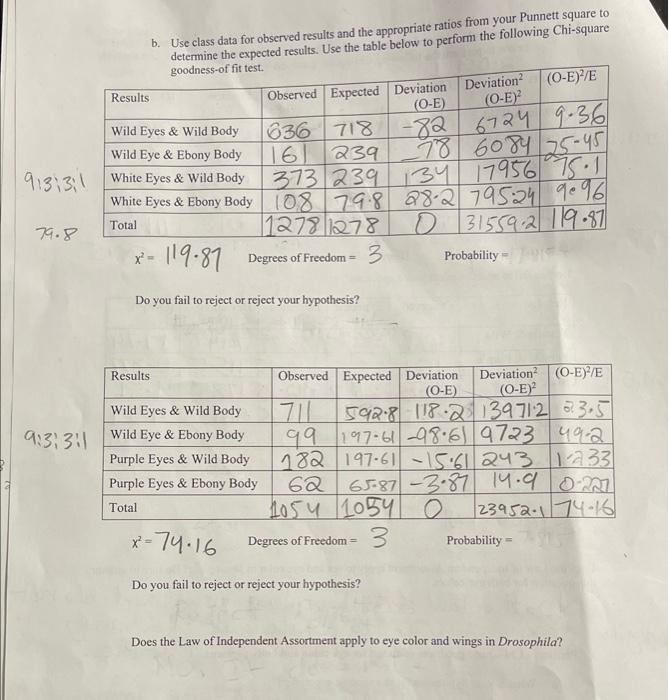 b. Use class data for observed results and the appropriate ratios from your Punnett square to
determine the expected results. Use the table below to perform the following Chi-square
goodness-of fit test.
Results Observed Expected Deviation (O-E) Deviation² (O-E)² (O-E)²/E
Wild Eyes & Wild Body 636 718 -82 6724 9.36
Wild Eye & Ebony Body 161 239 -78 6084 25.45
9:3:3:1 White Eyes & Wild Body 373 239 134 17956 75.1
White Eyes & Ebony Body 108 79.8 28.2 795.24 9.96
79.8 Total 1278 1278 0 31559.2 119.87
x² = 119.87 Degrees of Freedom = 3 Probability =
Do you fail to reject or reject your hypothesis?
Results Observed Expected Deviation (O-E) Deviation² (O-E)² (O-E)²/E
Wild Eyes & Wild Body 711 592.8 118.2 13971.2 23.5
9:3:3:1 Wild Eye & Ebony Body 99 197.61 -98.61 9723 49.2
Purple Eyes & Wild Body 182 197.61 -15.61 243 1.233
Purple Eyes & Ebony Body 62 65.87 -3.87 14.9 0.227
Total 1054 1054 0 23952.1 74.16
x² = 74.16 Degrees of Freedom = 3 Probability =
Do you fail to reject or reject your hypothesis?
Does the Law of Independent Assortment apply to eye color and wings in Drosophila?